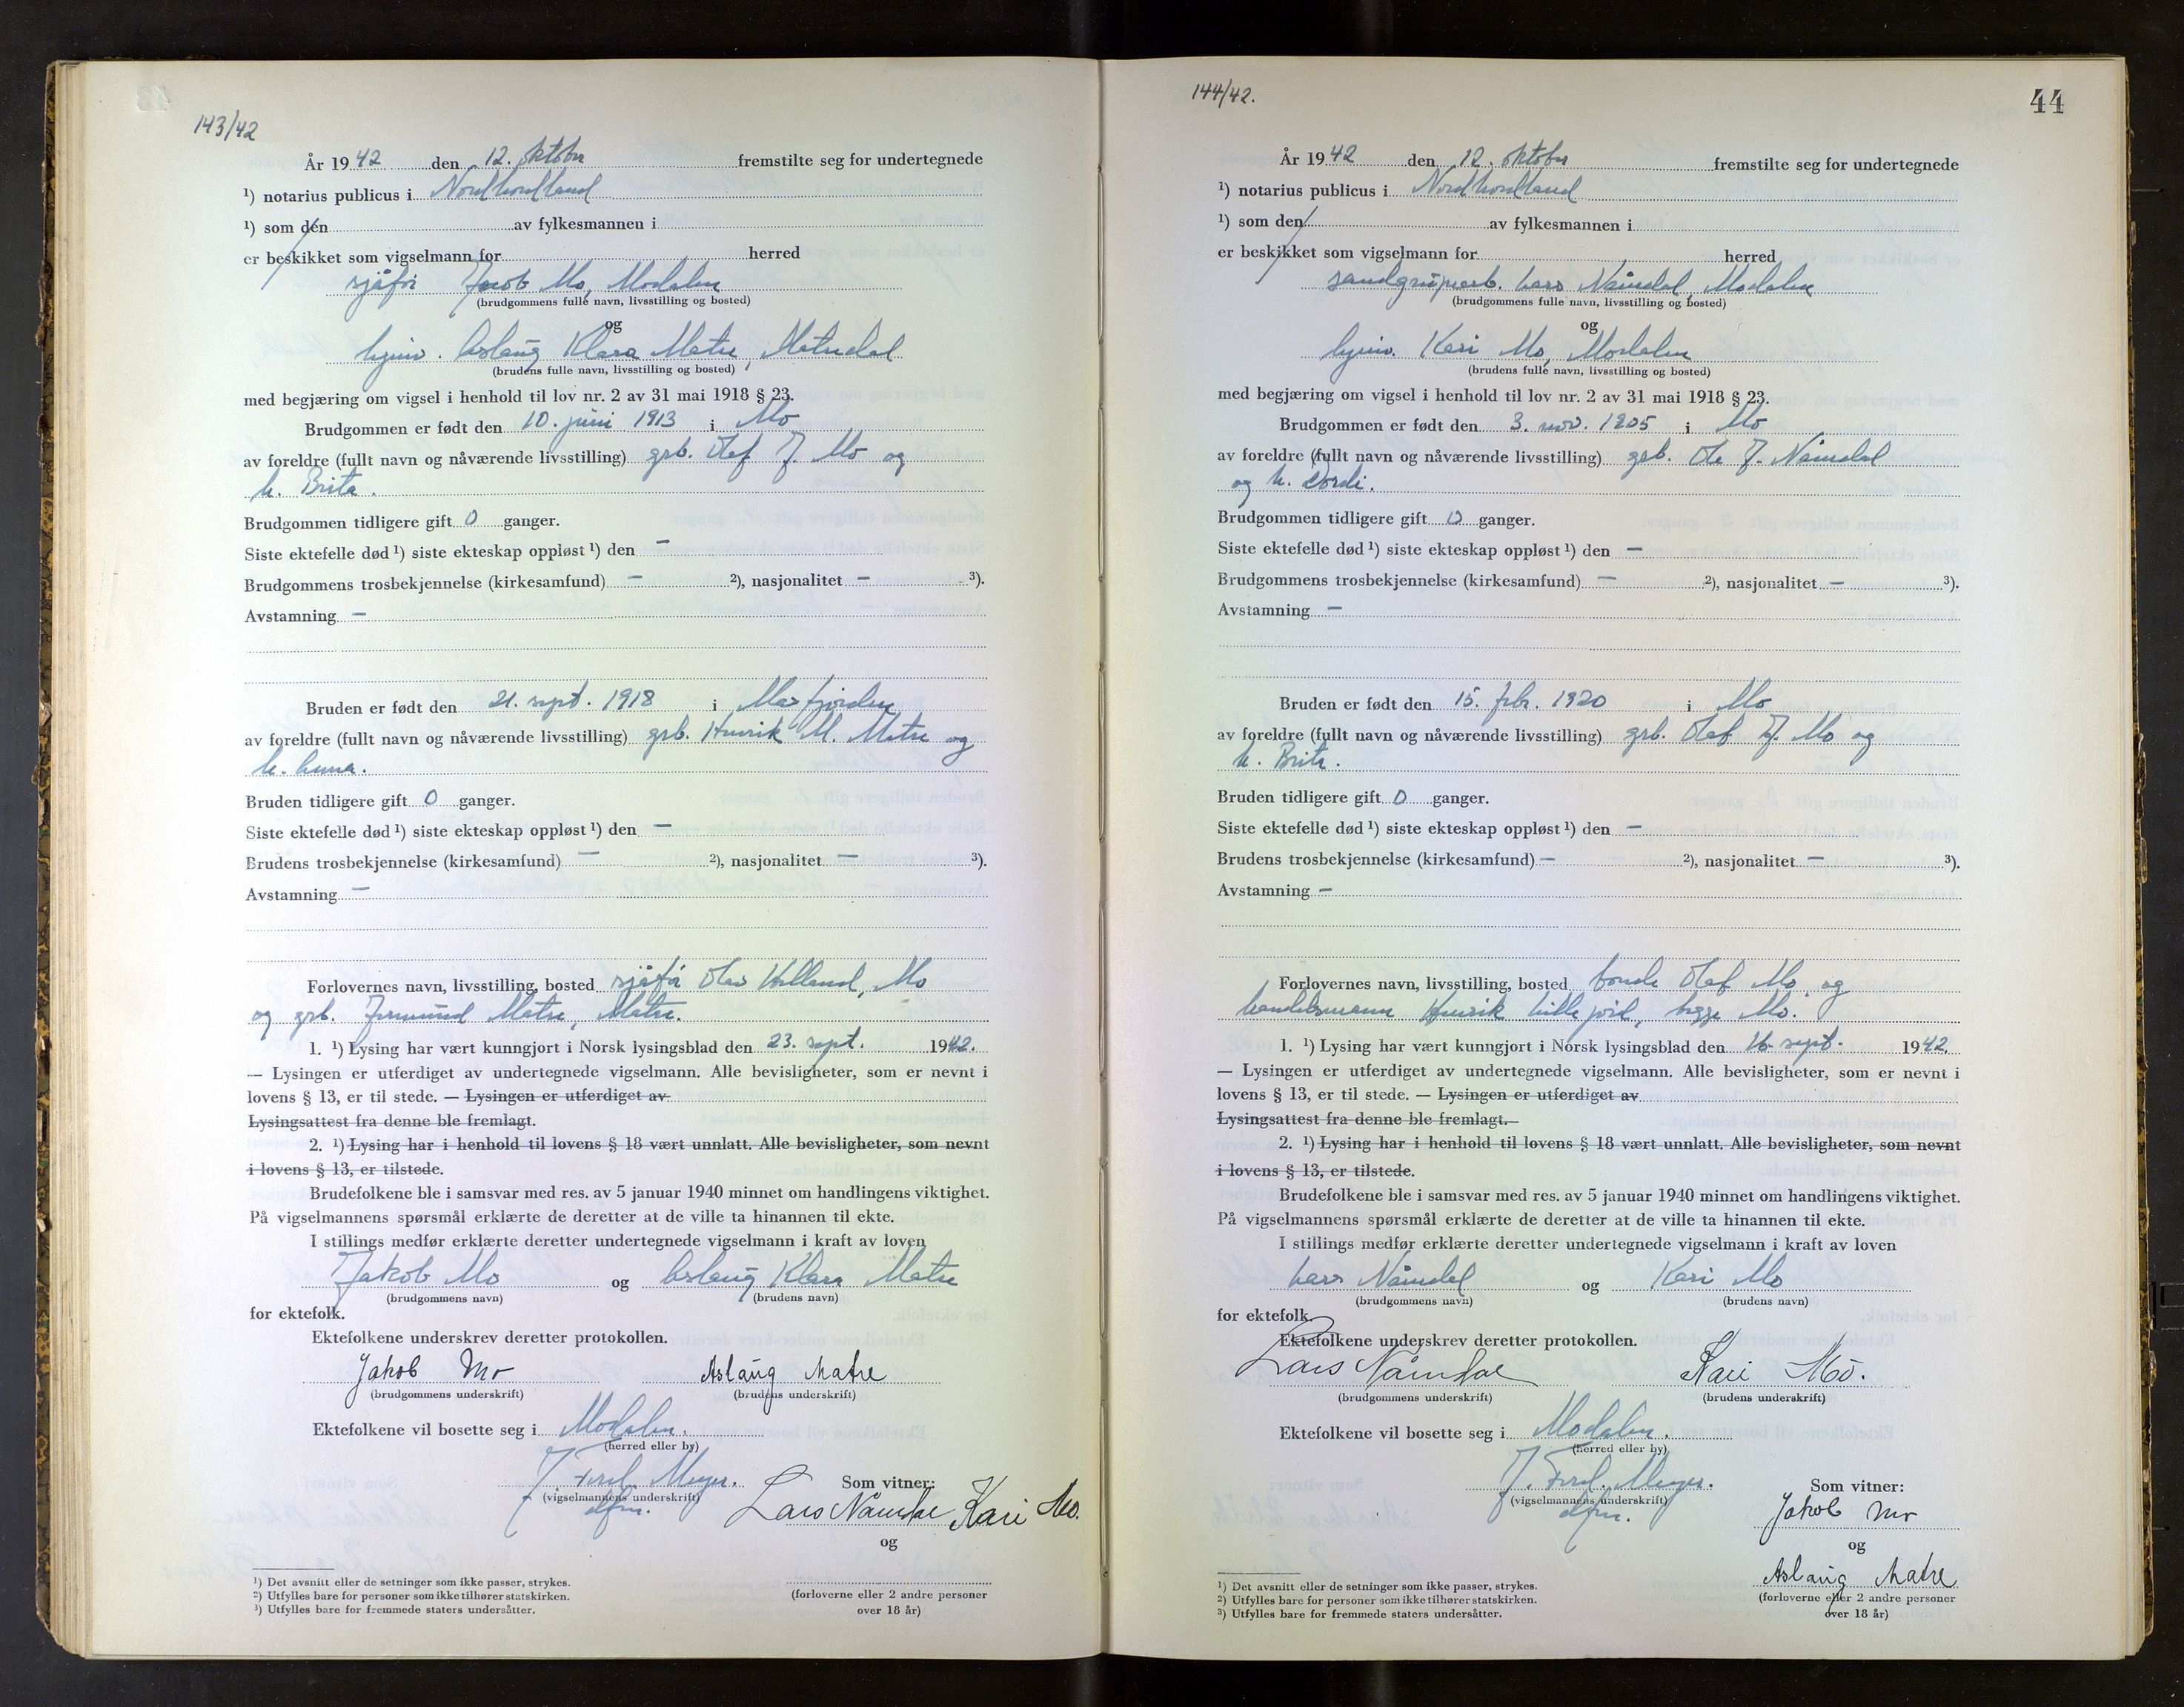 143/42
År 1942 den 12. oktober fremstilte seg for undertegnede
¹) notarius publicus i Nordhordland
¹) som den av fylkesmannen i
er beskikket som vigselmann for herred
sjåfør Jacob Mo, Modalen
(brudgommens fulle navn, livsstilling og bosted)
og
hjemv. Aslaug Klara Matre, Matredal
(brudens fulle navn, livsstilling og bosted)
med begjæring om vigsel i henhold til lov nr. 2 av 31 mai 1918 § 23.
Brudgommen er født den 10. juni 1913 i Mo
av foreldre (fullt navn og nåværende livsstilling) grb. Olaf J Mo og
h. Brita.
Brudgommen tidligere gift 0 ganger.
Siste ektefelle død ¹) siste ekteskap oppløst ¹) den —
Brudgommens trosbekjennelse (kirkesamfund) — ²), nasjonalitet — ³).
Avstamning —
Bruden er født den 21. sept. 1918 i Masfjorden
av foreldre (fullt navn og nåværende livsstilling) grb. Henrik M. Matre og
h. Anna.
Bruden tidligere gift 0 ganger.
Siste ektefelle død ¹) siste ekteskap oppløst ¹) den —
Brudens trosbekjennelse (kirkesamfund) — ²), nasjonalitet — ³).
Avstamning —
Forlovernes navn, livsstilling, bosted sjåfør Olav Helland, Mo
og grb. Jermund Matre, Matre.
1. ¹) Lysing har vært kunngjort i Norsk lysingsblad den 23. sept. 1942.
— Lysingen er utferdiget av undertegnede vigselmann. Alle bevisligheter, som er nevnt i
lovens § 13, er til stede. — Lysingen er utferdiget av
Lysingsattest fra denne ble fremlagt.
2. ¹) Lysing har i henhold til lovens § 18 vært unnlatt. Alle bevisligheter, som nevnt
i lovens § 13, er tilstede.
Brudefolkene ble i samsvar med res. av 5 januar 1940 minnet om handlingens viktighet.
På vigselmannens spørsmål erklærte de deretter at de ville ta hinannen til ekte.
I stillings medfør erklærte deretter undertegnede vigselmann i kraft av loven
Jakob Mo og Aslaug Klara Matre
(brudgommens navn) (brudens navn)
for ektefolk.
Ektefolkene underskrev deretter protokollen.
Jakob Mo Aslaug Matre
(brudgommens underskrift) (brudens underskrift)
Ektefolkene vil bosette seg i Modalen.
(herred eller by)
J. Ferd. Meyer. Som vitner:
(vigselmannens underskrift)
dfm. Lars Nåmdal Kari Mo.
og
(forloverne eller 2 andre personer
over 18 år)
¹) Det avsnitt eller de setninger som ikke passer, strykes.
²) Utfylles bare for personer som ikke tilhører statskirken.
³) Utfylles bare for fremmede staters undersåtter.
144/42.
44
År 1942 den 12. oktober fremstilte seg for undertegnede
¹) notarius publicus i Nordhordland
¹) som den av fylkesmannen i
er beskikket som vigselmann for herred
sandgruparb. Lars Nåmdal, Modalen
(brudgommens fulle navn, livsstilling og bosted)
og
hjemv. Kari Mo, Modalen
(brudens fulle navn, livsstilling og bosted)
med begjæring om vigsel i henhold til lov nr. 2 av 31 mai 1918 § 23.
Brudgommen er født den 3. nov. 1905 i Mo
av foreldre (fullt navn og nåværende livsstilling) grb. Ole J. Nåmdal
og h. Dordi.
Brudgommen tidligere gift 0 ganger.
Siste ektefelle død ¹) siste ekteskap oppløst ¹) den —
Brudgommens trosbekjennelse (kirkesamfund) — ²), nasjonalitet — ³).
Avstamning —
Bruden er født den 15. febr. 1920 i Mo
av foreldre (fullt navn og nåværende livsstilling) grb. Olaf J. Mo og
h. Brita.
Bruden tidligere gift 0 ganger.
Siste ektefelle død ¹) siste ekteskap oppløst ¹) den —
Brudens trosbekjennelse (kirkesamfund) — ²), nasjonalitet — ³).
Avstamning —
Forlovernes navn, livsstilling, bosted bonde Olaf Mo og
handelsmann Henrik Lillejord, begge Mo.
1. ¹) Lysing har vært kunngjort i Norsk lysingsblad den 16. sept. 1942
— Lysingen er utferdiget av undertegnede vigselmann. Alle bevisligheter, som er nevnt i
lovens § 13, er til stede. — Lysingen er utferdiget av
Lysingsattest fra denne ble fremlagt.
2. ¹) Lysing har i henhold til lovens § 18 vært unnlatt. Alle bevisligheter, som nevnt
i lovens § 13, er tilstede.
Brudefolkene ble i samsvar med res. av 5 januar 1940 minnet om handlingens viktighet.
På vigselmannens spørsmål erklærte de deretter at de ville ta hinannen til ekte.
I stillings medfør erklærte deretter undertegnede vigselmann i kraft av loven
Lars Nåmdal og Kari Mo
(brudgommens navn) (brudens navn)
for ektefolk.
Ektefolkene underskrev deretter protokollen.
Lars Nåmdal Kari Mo.
(brudgommens underskrift) (brudens underskrift)
Ektefolkene vil bosette seg i Modalen.
(herred eller by)
J. Ferd. Meyer. Som vitner:
(vigselmannens underskrift)
dfm. Jakob Mo
og
Aslaug Matre
(forloverne eller 2 andre personer
over 18 år)
¹) Det avsnitt eller de setninger som ikke passer, strykes.
²) Utfylles bare for personer som ikke tilhører statskirken.
³) Utfylles bare for fremmede staters undersåtter.